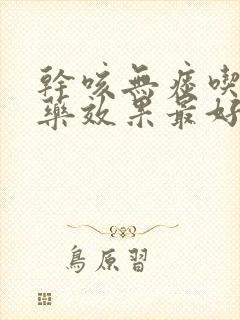 幹咳無痰喫
藥效果最好
鳥原習